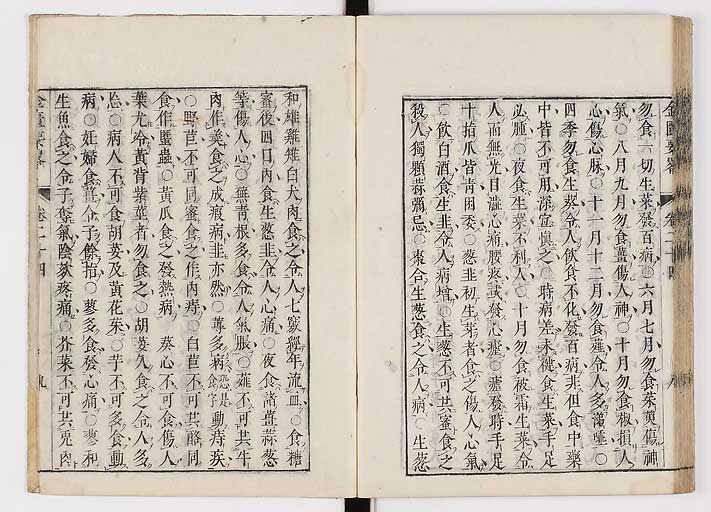 金匱要畧 卷二十四 八
勿食一切生菜發百病○六月七月勿食茱萸傷神
氣○八月九月勿食薑傷人神○十月勿食椒損人
心傷心脉○十一月十二月勿食薤令人多涕唾○
四季勿食生葵令人飲食不化發百病非但食中藥
中皆不可用深宜愼之○時病差未健食生菜手足
必腫○夜食生菜不利人○十月勿食被霜生菜令
人面無光目澁心痛腰疼或發心瘧○瘧發時手足
十指爪皆青困委○葱韭初生芽者食之傷人心氣
○飲白酒食生韭令人病增○生葱不可共蜜食之
殺人獨顆蒜彌忌○棗合生葱食之令人病○生葱
和雄雞雉白犬肉食之令人七竅經年流血○食糖
蜜後四日內食生葱韭令人心痛○夜食諸薑蒜葱
等傷人心○蕪青根多食令人氣脹○薤不可共牛
肉作羮食之成瘕病韭亦然○蓴多病動痔疾
○野苣不可同蜜食之作內痔○白苣不可共酪同
食作䘌蟲○黃瓜食之發熱病 葵心不可食傷人
葉尤冷黃背紫莖者勿食之○胡荽久食之令人多
忘○病人不可食胡荽及黃花茱○芋不可多食動
病○妊婦食薑令子餘指○蓼多食發心痛○蓼和
生魚食之令子奪氣陰欬疼痛○芥菜不可共兎肉
金匱要畧 卷二十四 九